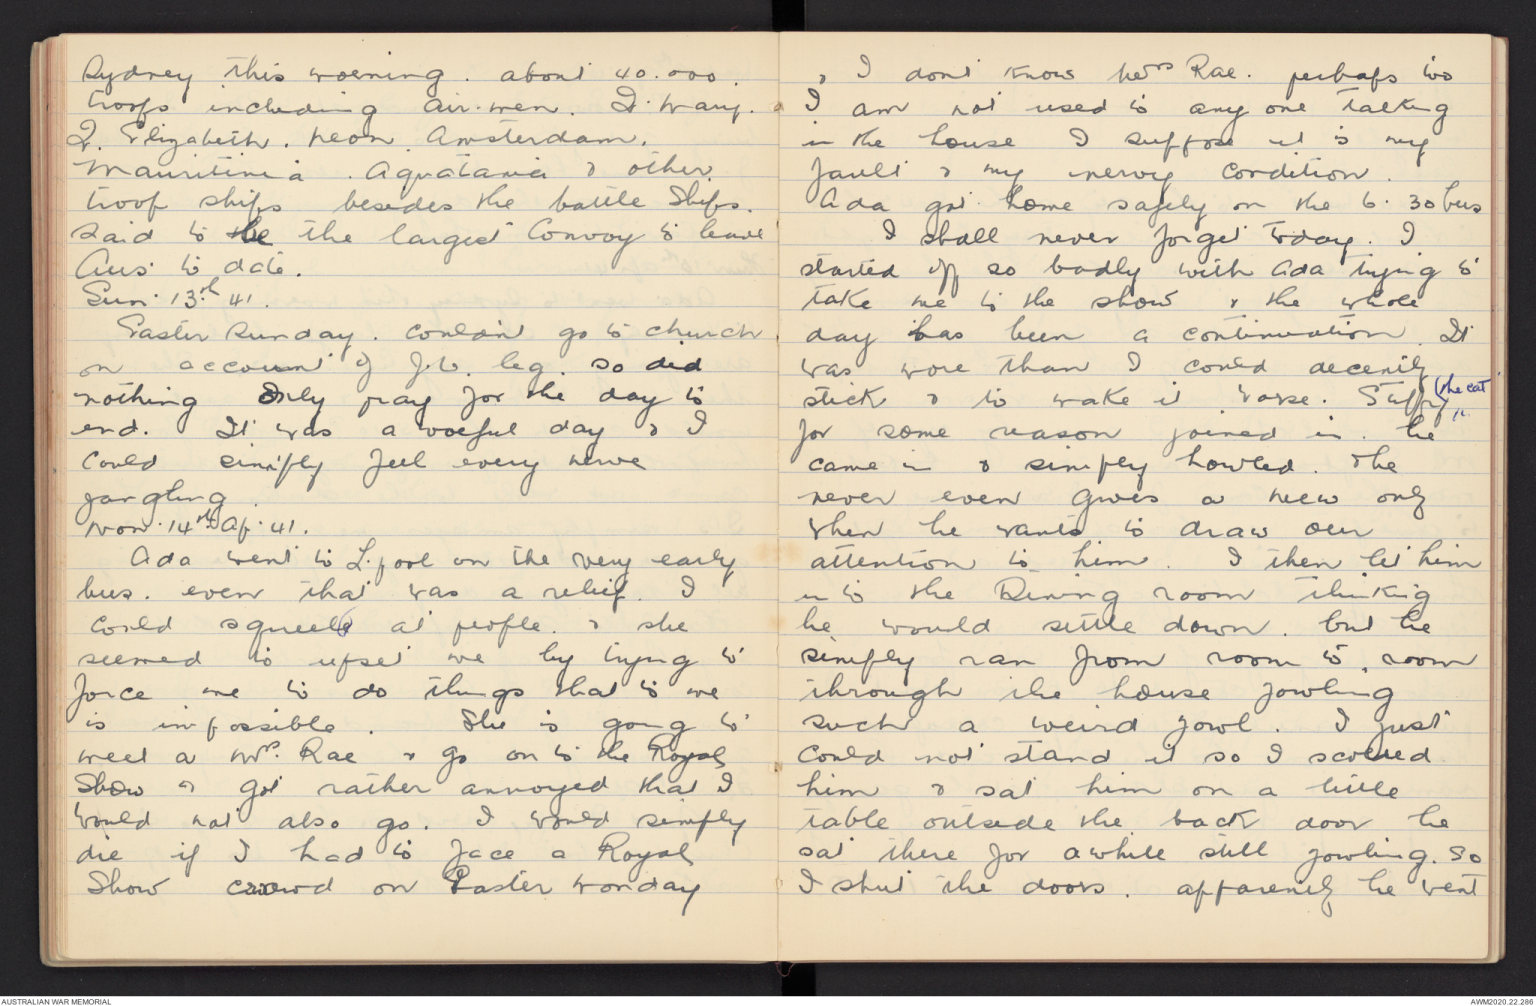 Sydney this morning. about 40.000
troops including air-men. Q. Mary.
Q. Elizabeth. Neon Amsterdam.
Mauritinia. Aquatania & other
troop ships besides the battle Ships.
said to be the largest Convoy to leave
Aus. to date.
Sun. 13th. 41.
Easter Sunday. couldn't go to church
on account of J.V. leg. so did
nothing Only pray for the day to
end. It was a woeful day & I
could simply feel every nerve
jangling.
Mon. 14th Ap. 41.
Ada went to L.pool on the very early
bus. even that was a relief. I
could squeel at people. & she
seemed to upset me by trying to
force me to do things that to me
is impossible. She is going to
meet a Mrs. Rae & go on to the Royal
Show & got rather annoyed that I
would not also go. I would simply
die if I had to face a Royal
Show crowd on Easter Monday
& I don't know Mrs Rae. perhaps too
I am not used to any one talking
in the house I suppose it is my
fault & my nervy condition.
Ada got home safely on the 6.30 bus
I shall never forget today. I
started off so badly with Ada trying to
take me to the show & the whole
day has been a continuation. It
was more than I could decently
stick & to make it worse. Stuffy (the cat
for some reason joined in. he
came in & simply howled. He
never even gives a mew only
when he wants to draw our
attention to him. I then let him
in to the Dining room thinking
he would settle down. but he
simply ran from room to room
through the house yowling
such a weird yowl. I just
could not stand it so I scolded
him & sat him on a little
table outside the back door he
sat there for awhile still yowling. so
I shut the doors. apparently he went
AUSTRALIAN WAR MEMORIAL
AWM2020.22.286